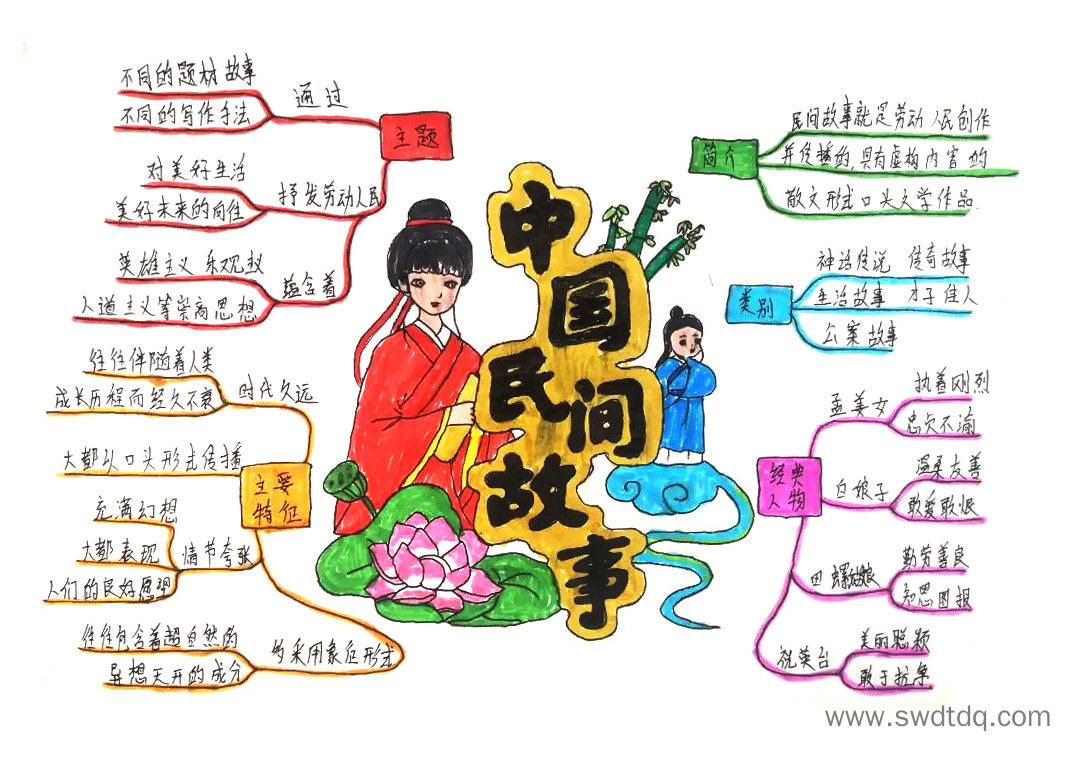 中国民间故事
主题
通过
不同的题材故事
不同的写作手法
抒发劳动人民
对美好生活
美好未来的向往
蕴含着
英雄主义 乐观主义
人道主义等崇高思想
主要
特征
时代久远
往往伴随着人类
成长历程而经久不衰
大都以口头形式传播
情节夸张
充满幻想
大都表现
人们的良好愿望
多采用象征形式
往往包含着超自然的
异想天开的成分
简介
民间故事就是劳动人民创作
并传播的,具有虚构内容的
散文形式口头文学作品.
类别
神话传说 传奇故事
生活故事 才子佳人
公案故事
经典
人物
孟姜女
执着刚烈
忠贞不渝
白娘子
温柔友善
敢爱敢恨
田螺姑娘
勤劳善良
知恩图报
祝英台
美丽聪颖
敢于抗争
www.swdtdq.com